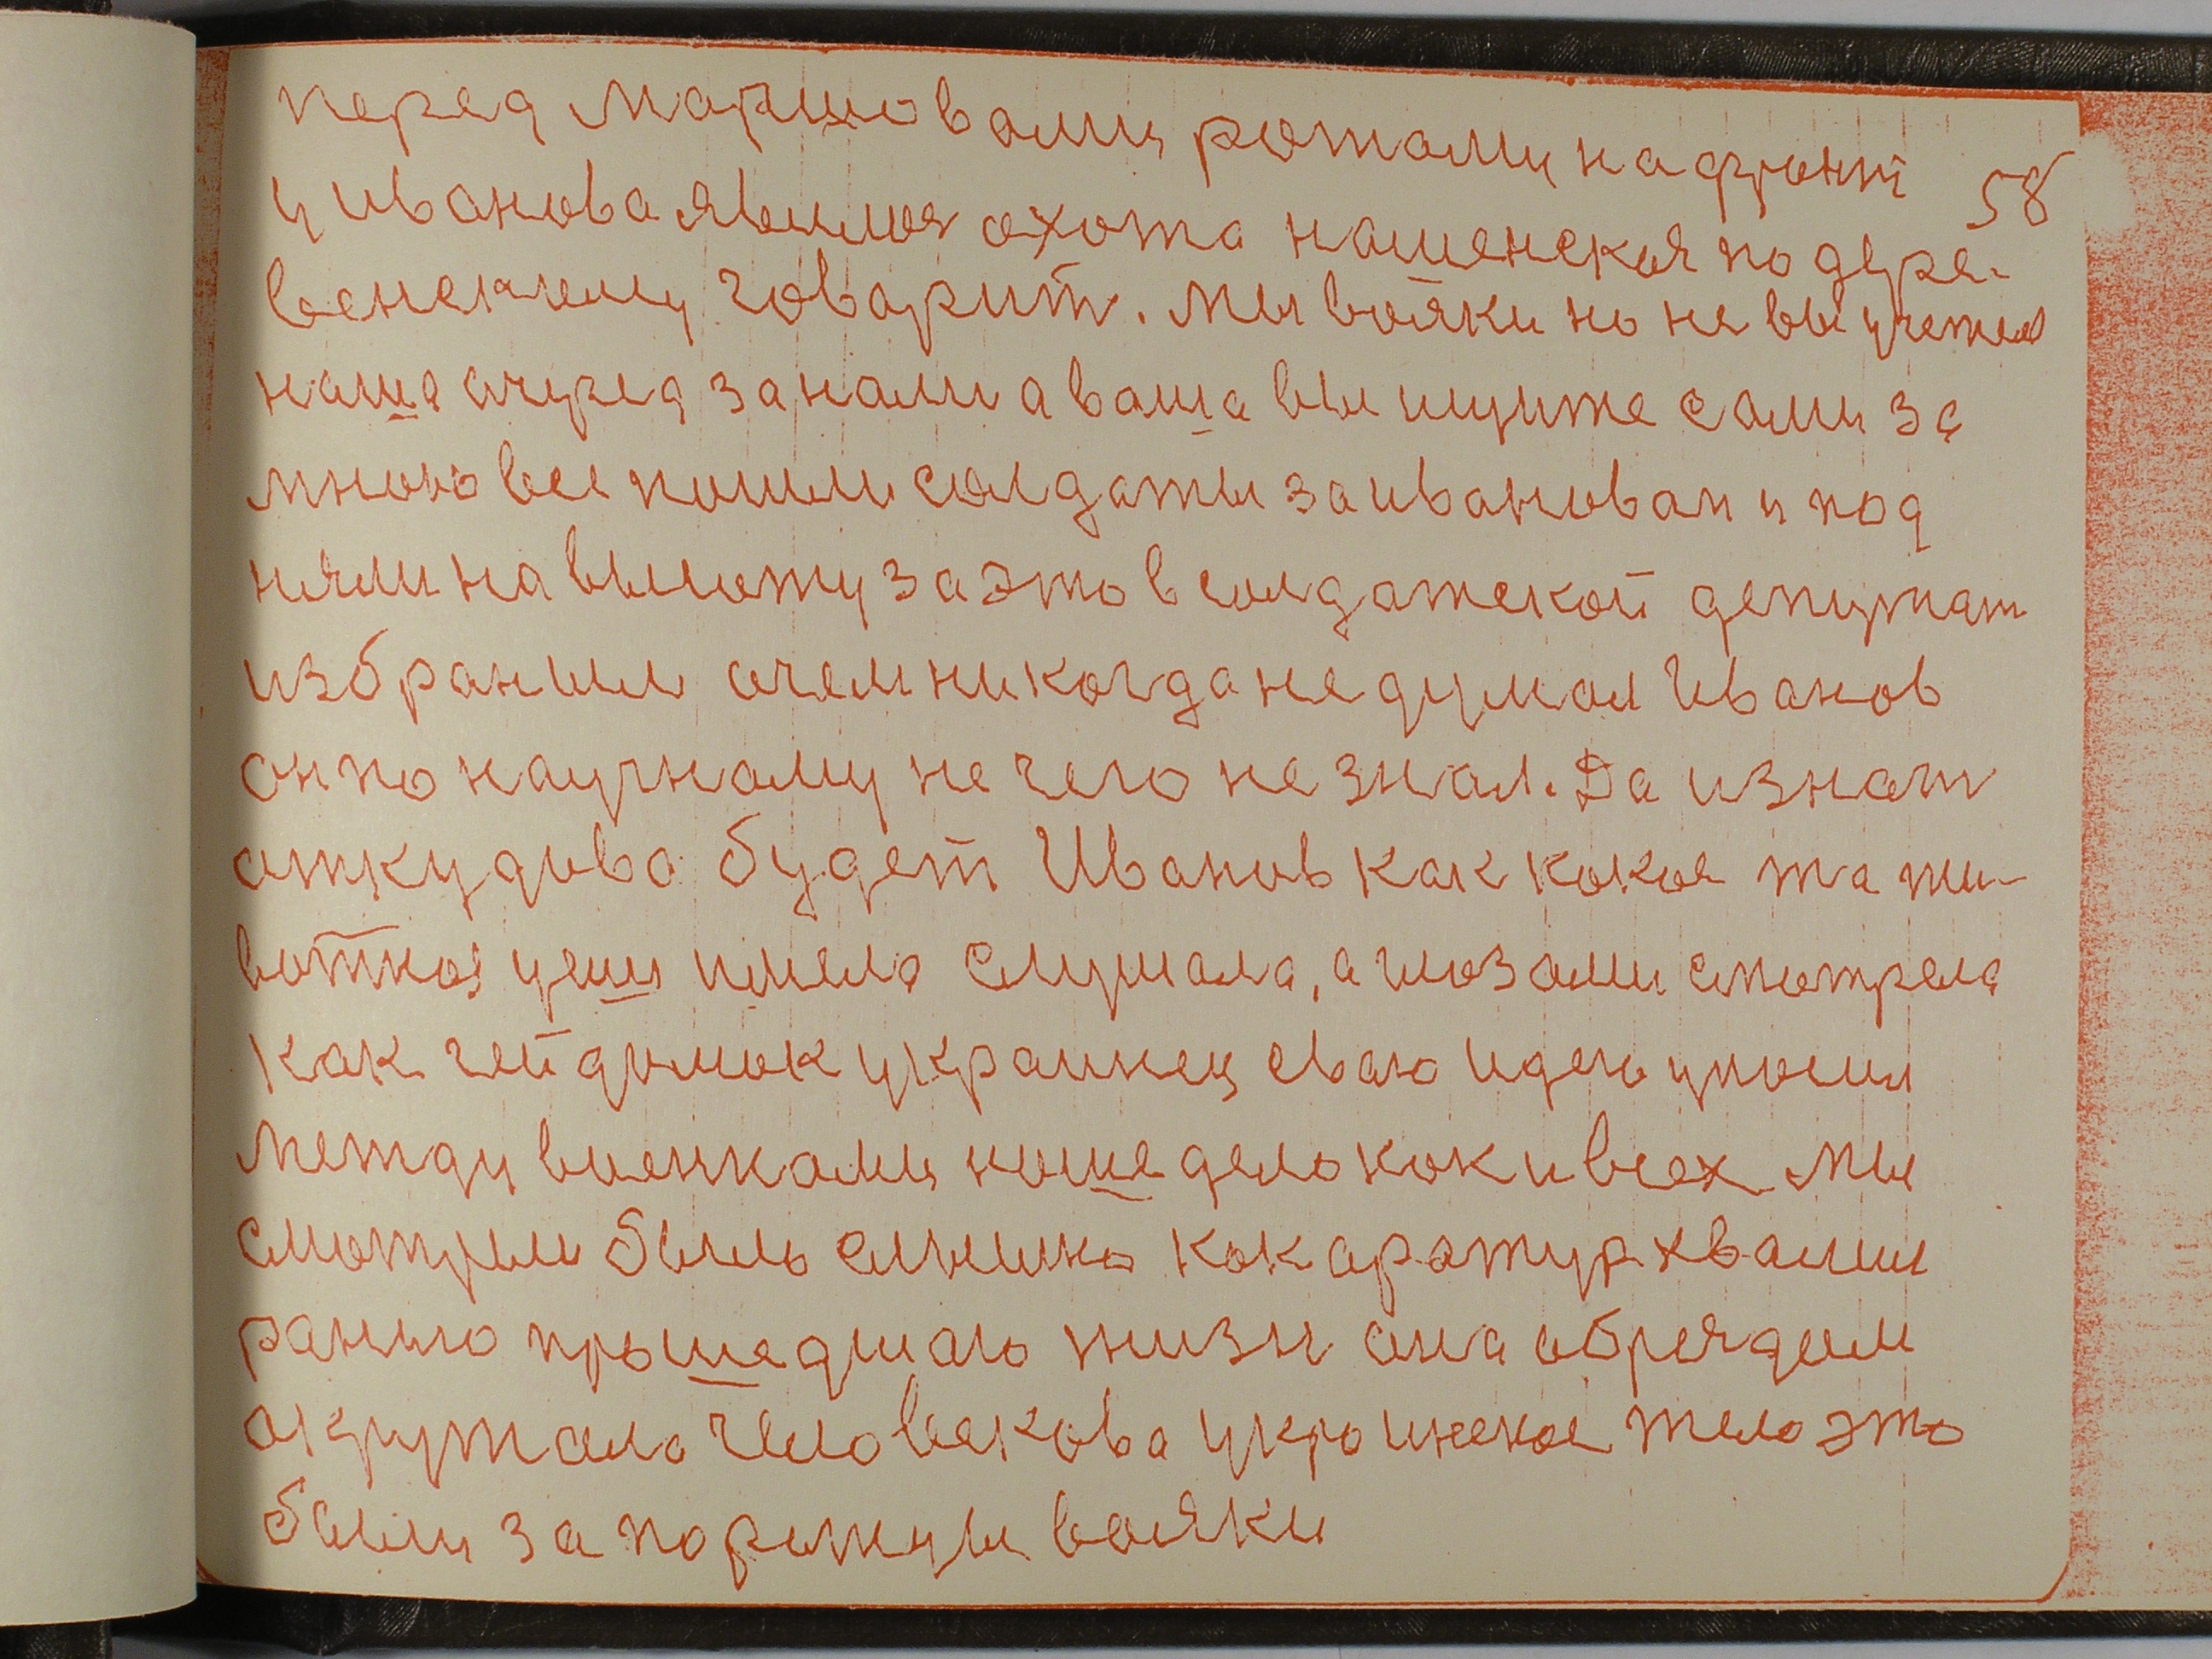 перед маршовами ротами на фронт
58
у иванова явился охота нашенская по дере-
венскиму говорит. мы вояки но не вы учетел
наша очеред занами а ваша вы ищите сами за
мною все пошли солдаты за ивановам и под
няли на высоту за это в солдатской депутат
избранили очем никогда не думал Иванов
он по научнаму не чего не знал. Да и знат
откудова будет Иванов как какое та жи-
вотное уши имела слушала, а глазами смотрела
как гейдамак украинец сваю идею уносил
между военками наше дело как и всех мы
смотрели было слышно как аратур хвалил
ранию прошедшаю жизн она обрядам
окружала человекова украинское тело это
были запорожцы вояки